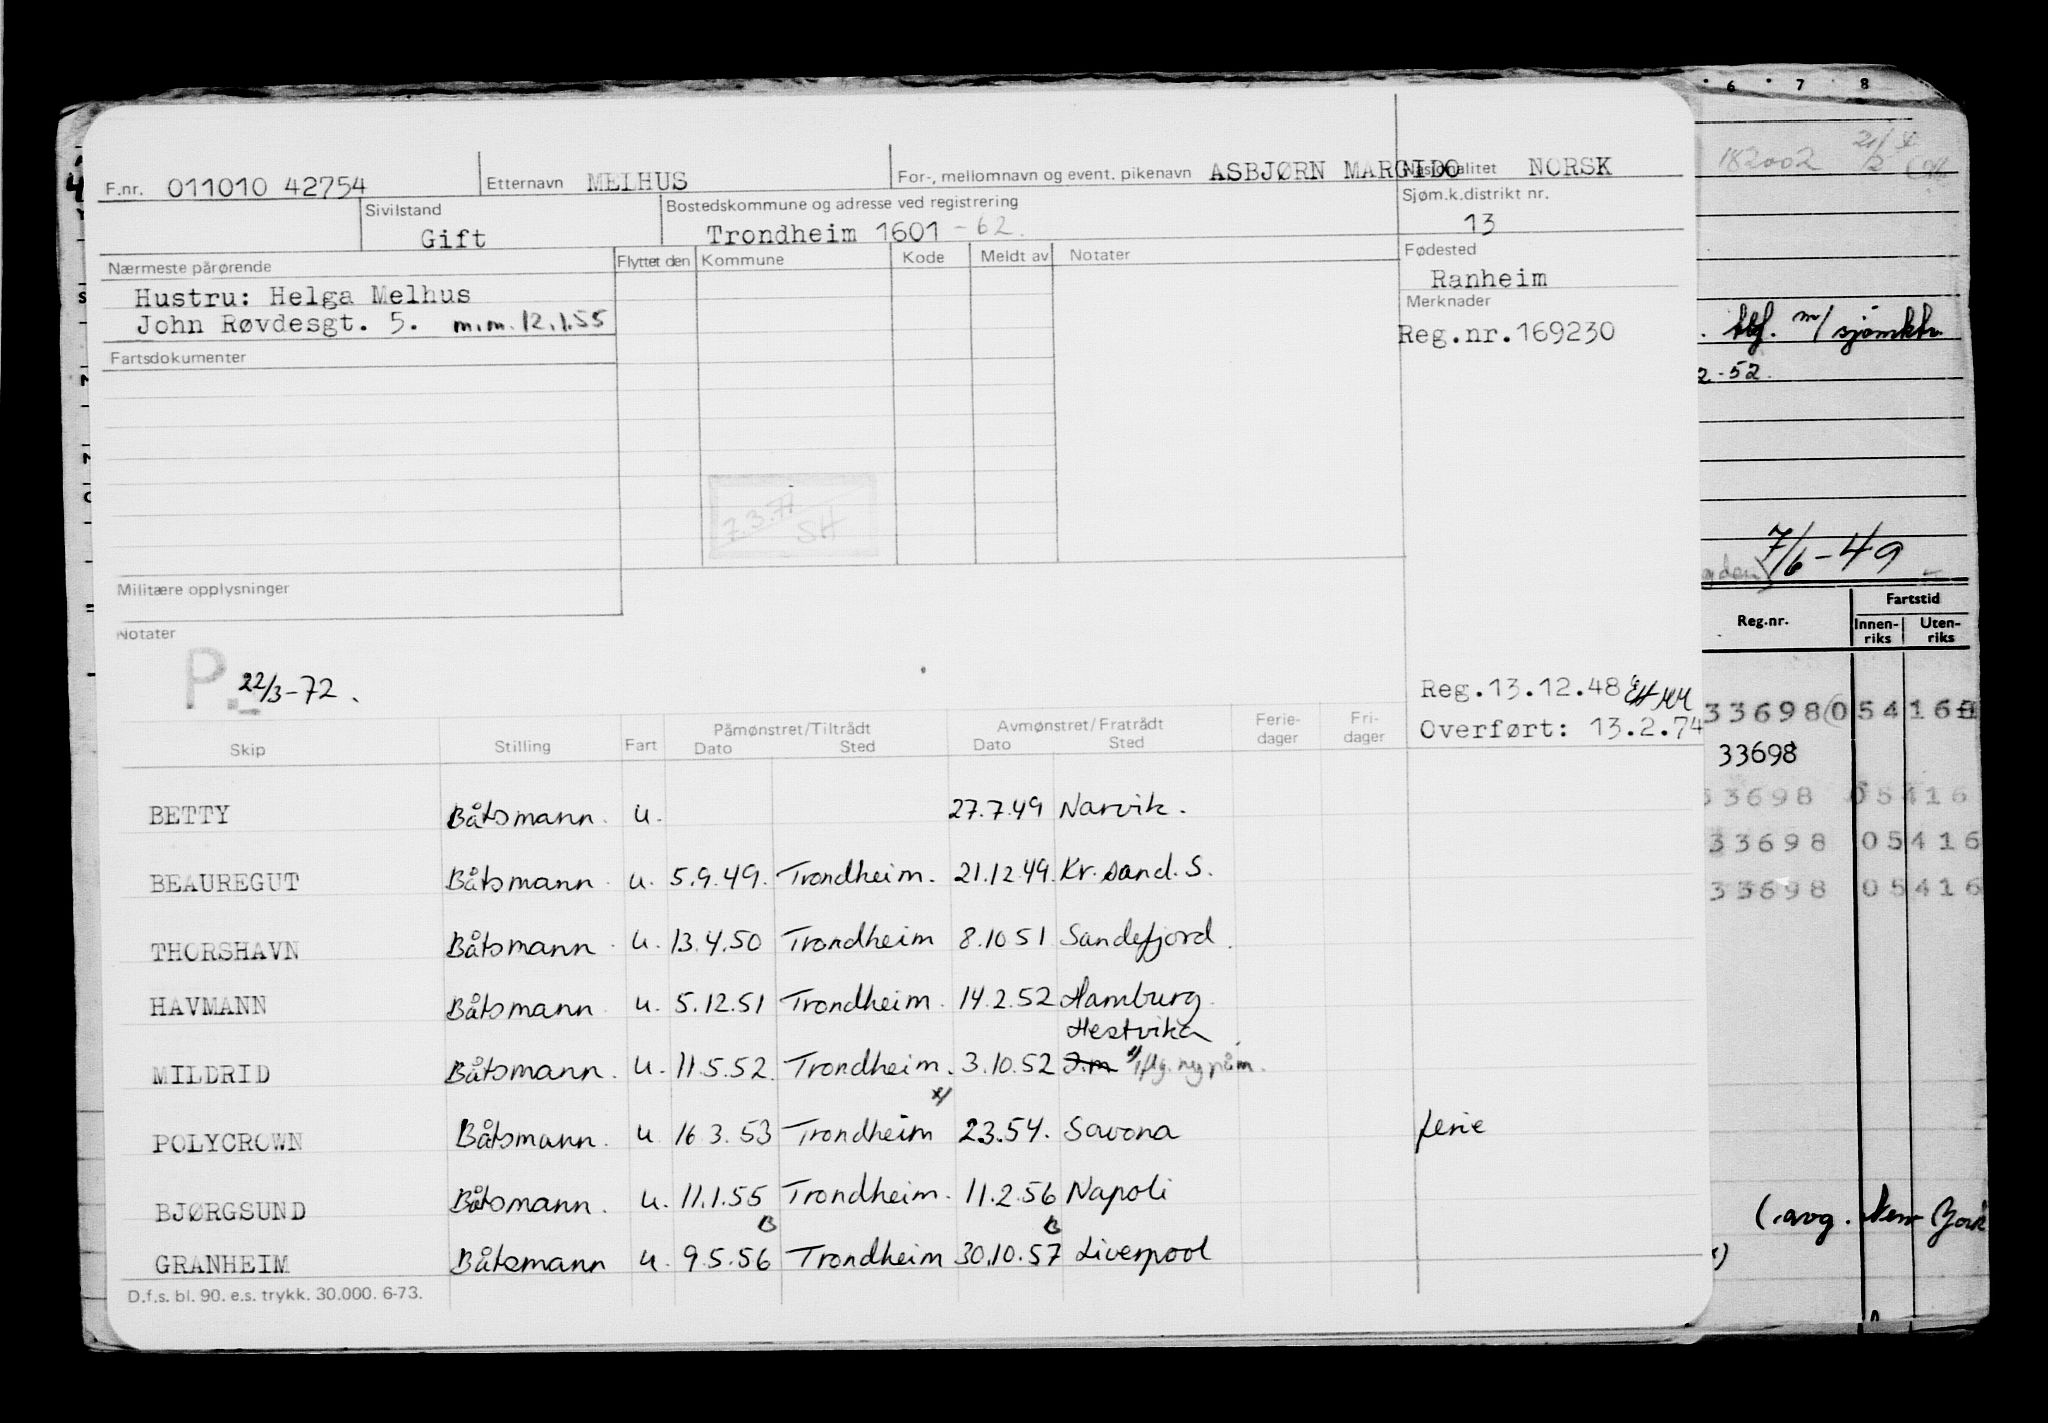 6 7 8
182002
F.nr. 011010 42754 Etternavn MELHUS For-, mellomnavn og event. pikenavn ASBJØRN MARGIDO Nasjonalitet NORSK
Sivilstand Gift Bostedskommune og adresse ved registrering Trondheim 1601 -62. Sjøm.k.distrikt nr. 13
Nærmeste pårørende Flyttet den Kommune Kode Meldt av Notater Fødested Ranheim
Hustru: Helga Melhus
John Røvdesgt. 5. m.m. 12.1.55
Merknader
Reg.nr.169230
. tlf. m/ sjømktr.
2-52.
Fartsdokumenter
7.3.77
SH
7/6-49
Militære opplysninger
Notater
P. 22/3-72.
Reg.13.12.48
Overført: 13.2.74
Reg.nr. Fartstid
Innen-riks Uten-riks
33698 05416
33698
33698 05416
33698 05416
33698 05416
Skip Stilling Fart Påmønstret/Tiltrådt Dato Sted Avmønstret/Fratrådt Dato Sted Ferie-dager Fri-dager
BETTY Båtsmann. u. 27.7.49 Narvik.
BEAUREGUT Båtsmann. u. 5.9.49. Trondheim. 21.12.49. Kr.sand.S.
THORSHAVN Båtsmann. u. 13.4.50 Trondheim 8.10 51 Sandefjord.
HAVMANN Båtsmann. u. 5.12.51 Trondheim. 14.2.52 Hamburg.
Hestvika
MILDRID Båtsmann. u. 11.5.52. Trondheim. 3.10.52 J.m
x/
POLYCROWN Båtsmann. u. 16 3.53 Trondheim 2.3.54. Savona ferie
BJØRGSUND Båtsmann. u. 11.1.55 Trondheim. 11.2.56 Napoli
B B
GRANHEIM Båtsmann u. 9.5.56 Trondheim 30.10.57 Liverpool
(.avg. New York
x)
D.f.s. bl. 90. e.s. trykk. 30.000. 6-73.